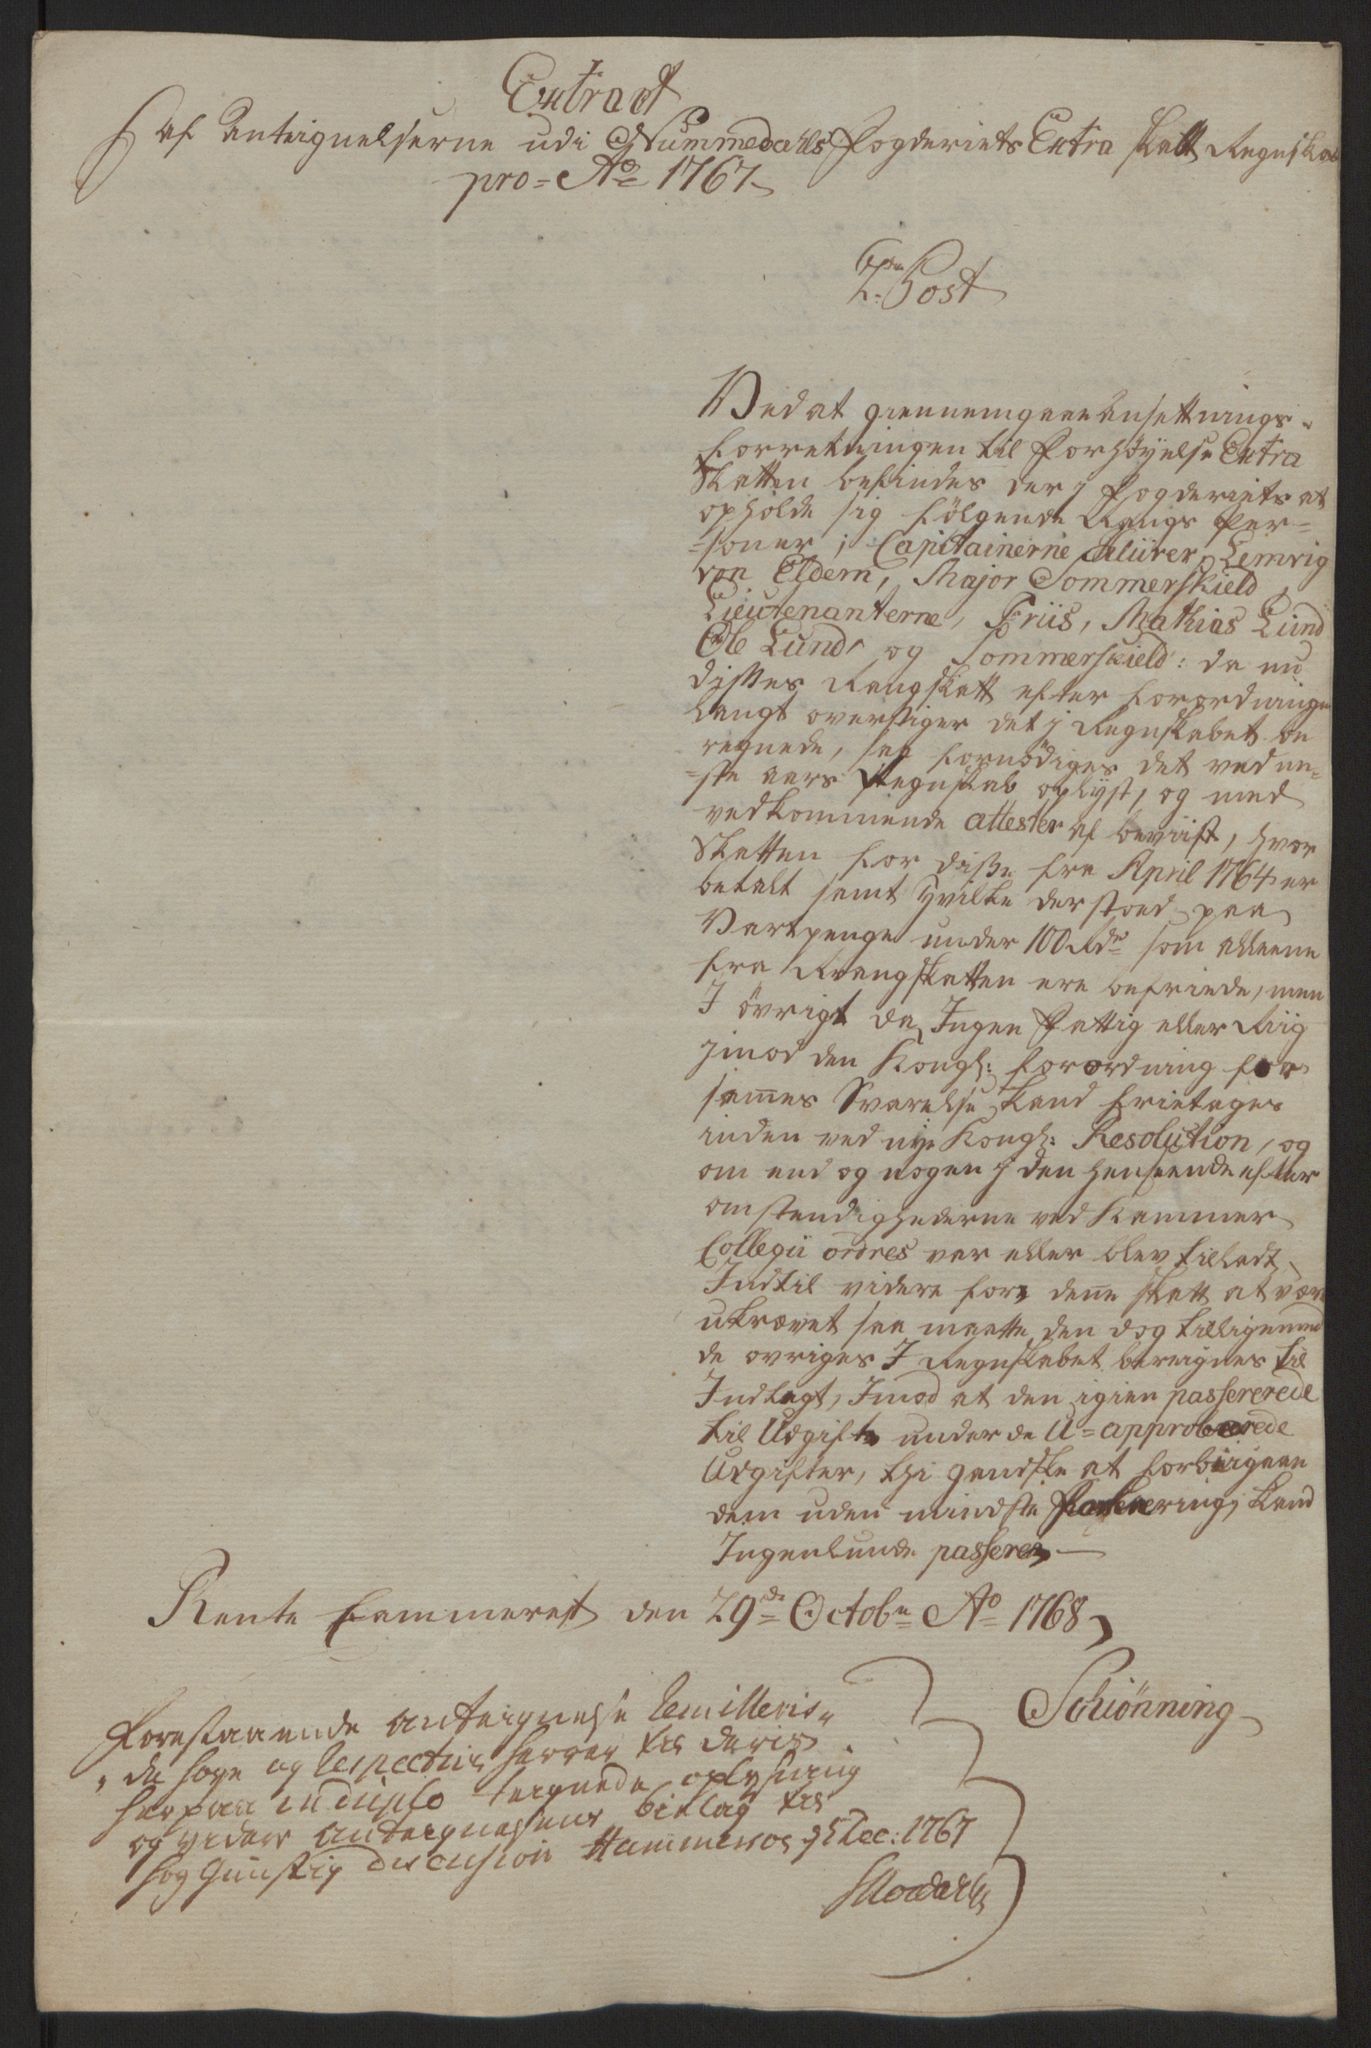 Extract
af Anteignelserne udi Nummedahls Fogderiets Extra Skatt Regnskab
pro = Ao 1767
2den Post
Ved at giennemgaae Ansettnings-
forretningen til Forhøyelse Extra
Skatten befindes der j Fogderiets at
opholde sig følgende Rangs Per-
-soner; Capitainerne Lemvig
von Eldern, Major Sommerskield
Lieutenanterne, Friis, Mathias Lund
Ole Lund, og Sommerskield: da nu
disses Rangskatt efter Forordningen
langt overstiger det j Regnskabet be
regnede, saa fornødiges det ved ne-
-ste aars Regnskab oplyst, og med
vedkommende attester af beviist, hvor
Skatten for diße fra April 1764 er
betalt samt hvilke der stoed paa
Vartpenge under 100 Rdr som alleene
fra Rangskatten ere befriede, men
J øvrigt da Ingen Fattig eller Riig
jmod den Kongl: forordning for
sam̅es Svarelse kand fritages
uden ved nye Kongl: Resolution, og
om end og nogen j den henseende efter
omstendighederne ved Kammer
Collegii ordres var eller blev tilladt
Indtil videre for den̅e skatt at være
ukrævet saa maatte den dog tilligemed
de øvriges J Regnskabet bereignes til
Indtegt, Imod at den igien passererede
til Udgift under de U=approberede
Udgifter, thi gandske at forbiigaae
dem uden mindste kand
Ingenlunde passeres
Rente Cammeret den 29de Octobr Ao 1768
Schiønning
Forestaaende Antegnelse remitteris
de høye og respective herrer til deris
herpaa in duplo teignede oplysning
og videre Antegnelsens bielag til
høygunstig decision Hammeros 9 Dec: 1767